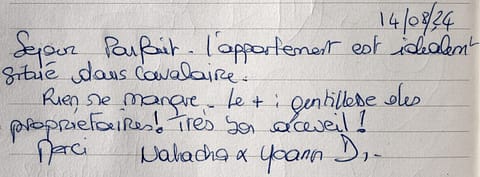 14/08/24
Sejour Parfait. l'appartement est idéalement
situé dans Cavalaire.
Rien ne manque. Le + : gentillesse des
propriétaires! Très bon acceuil!
Merci Natacha & Yoann D.-